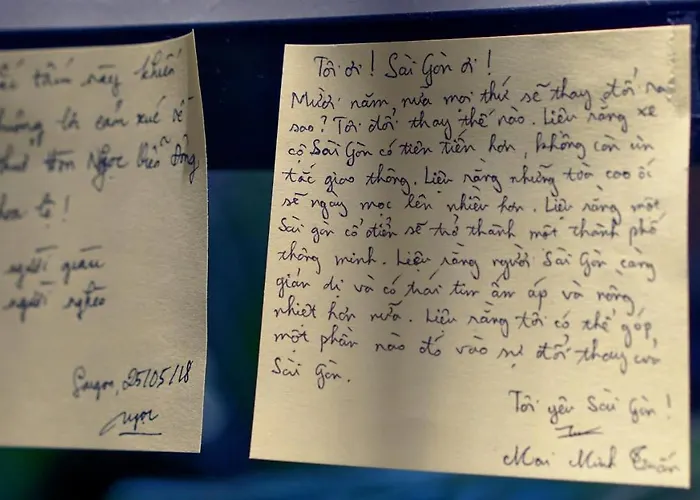 tấm này khiến
không là cảm xúc về
Ngọc Viễn Đông
người giàu
người nghèo
Saigon, 25/05/18
Ngọc
Tôi ơi! Sài Gòn ơi!
Mười năm nữa mọi thứ sẽ thay đổi ra
sao? Tôi đổi thay thế nào. Liệu rằng xe
cộ Sài Gòn có tiên tiến hơn, không còn ùn
tắc giao thông. Liệu rằng những tòa cao ốc
sẽ ngày mọc lên nhiều hơn. Liệu rằng một
Sài gòn cổ điển sẽ trở thành một thành phố
thông minh. Liệu rằng người Sài Gòn càng
giản dị và có trái tim ấm áp và nồng
nhiệt hơn nữa. Liệu rằng tôi có thể góp
một phần nào đó vào sự đổi thay của
Sài Gòn.
Tôi yêu Sài Gòn!
Mai Minh Tuấn